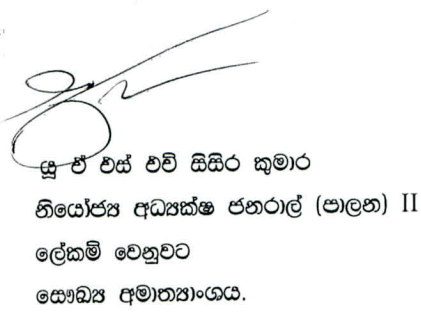 යූ ඒ එස් එච් සිසිර කුමාර
නියෝජ්‍ය අධ්‍යක්ෂ ජනරාල් (පාලන) II
ලේකම් වෙනුවට
සෞඛ්‍ය අමාත්‍යාංශය.